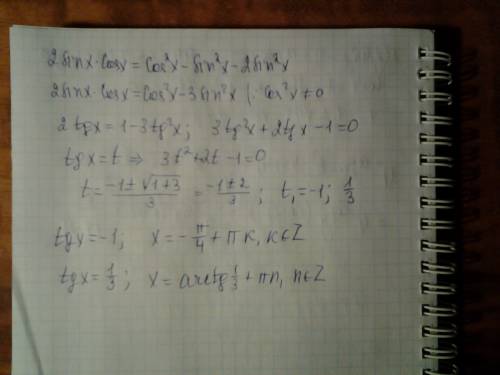 2sinx·cosx = cos²x - sin²x - 2sin²x
2sinx·cosx = cos²x - 3sin²x | : cos²x ≠ 0
2tgx = 1 - 3tg²x; 3tg²x + 2tgx - 1 = 0
tgx = t ⇒ 3t² + 2t - 1 = 0
t = (-1 ± √(1+3))/3 = (-1 ± 2)/3; t₁ = -1; 1/3
tgx = -1; x = -π/4 + πк, к∈Z
tgx = 1/3; x = arctg 1/3 + πn, n∈Z